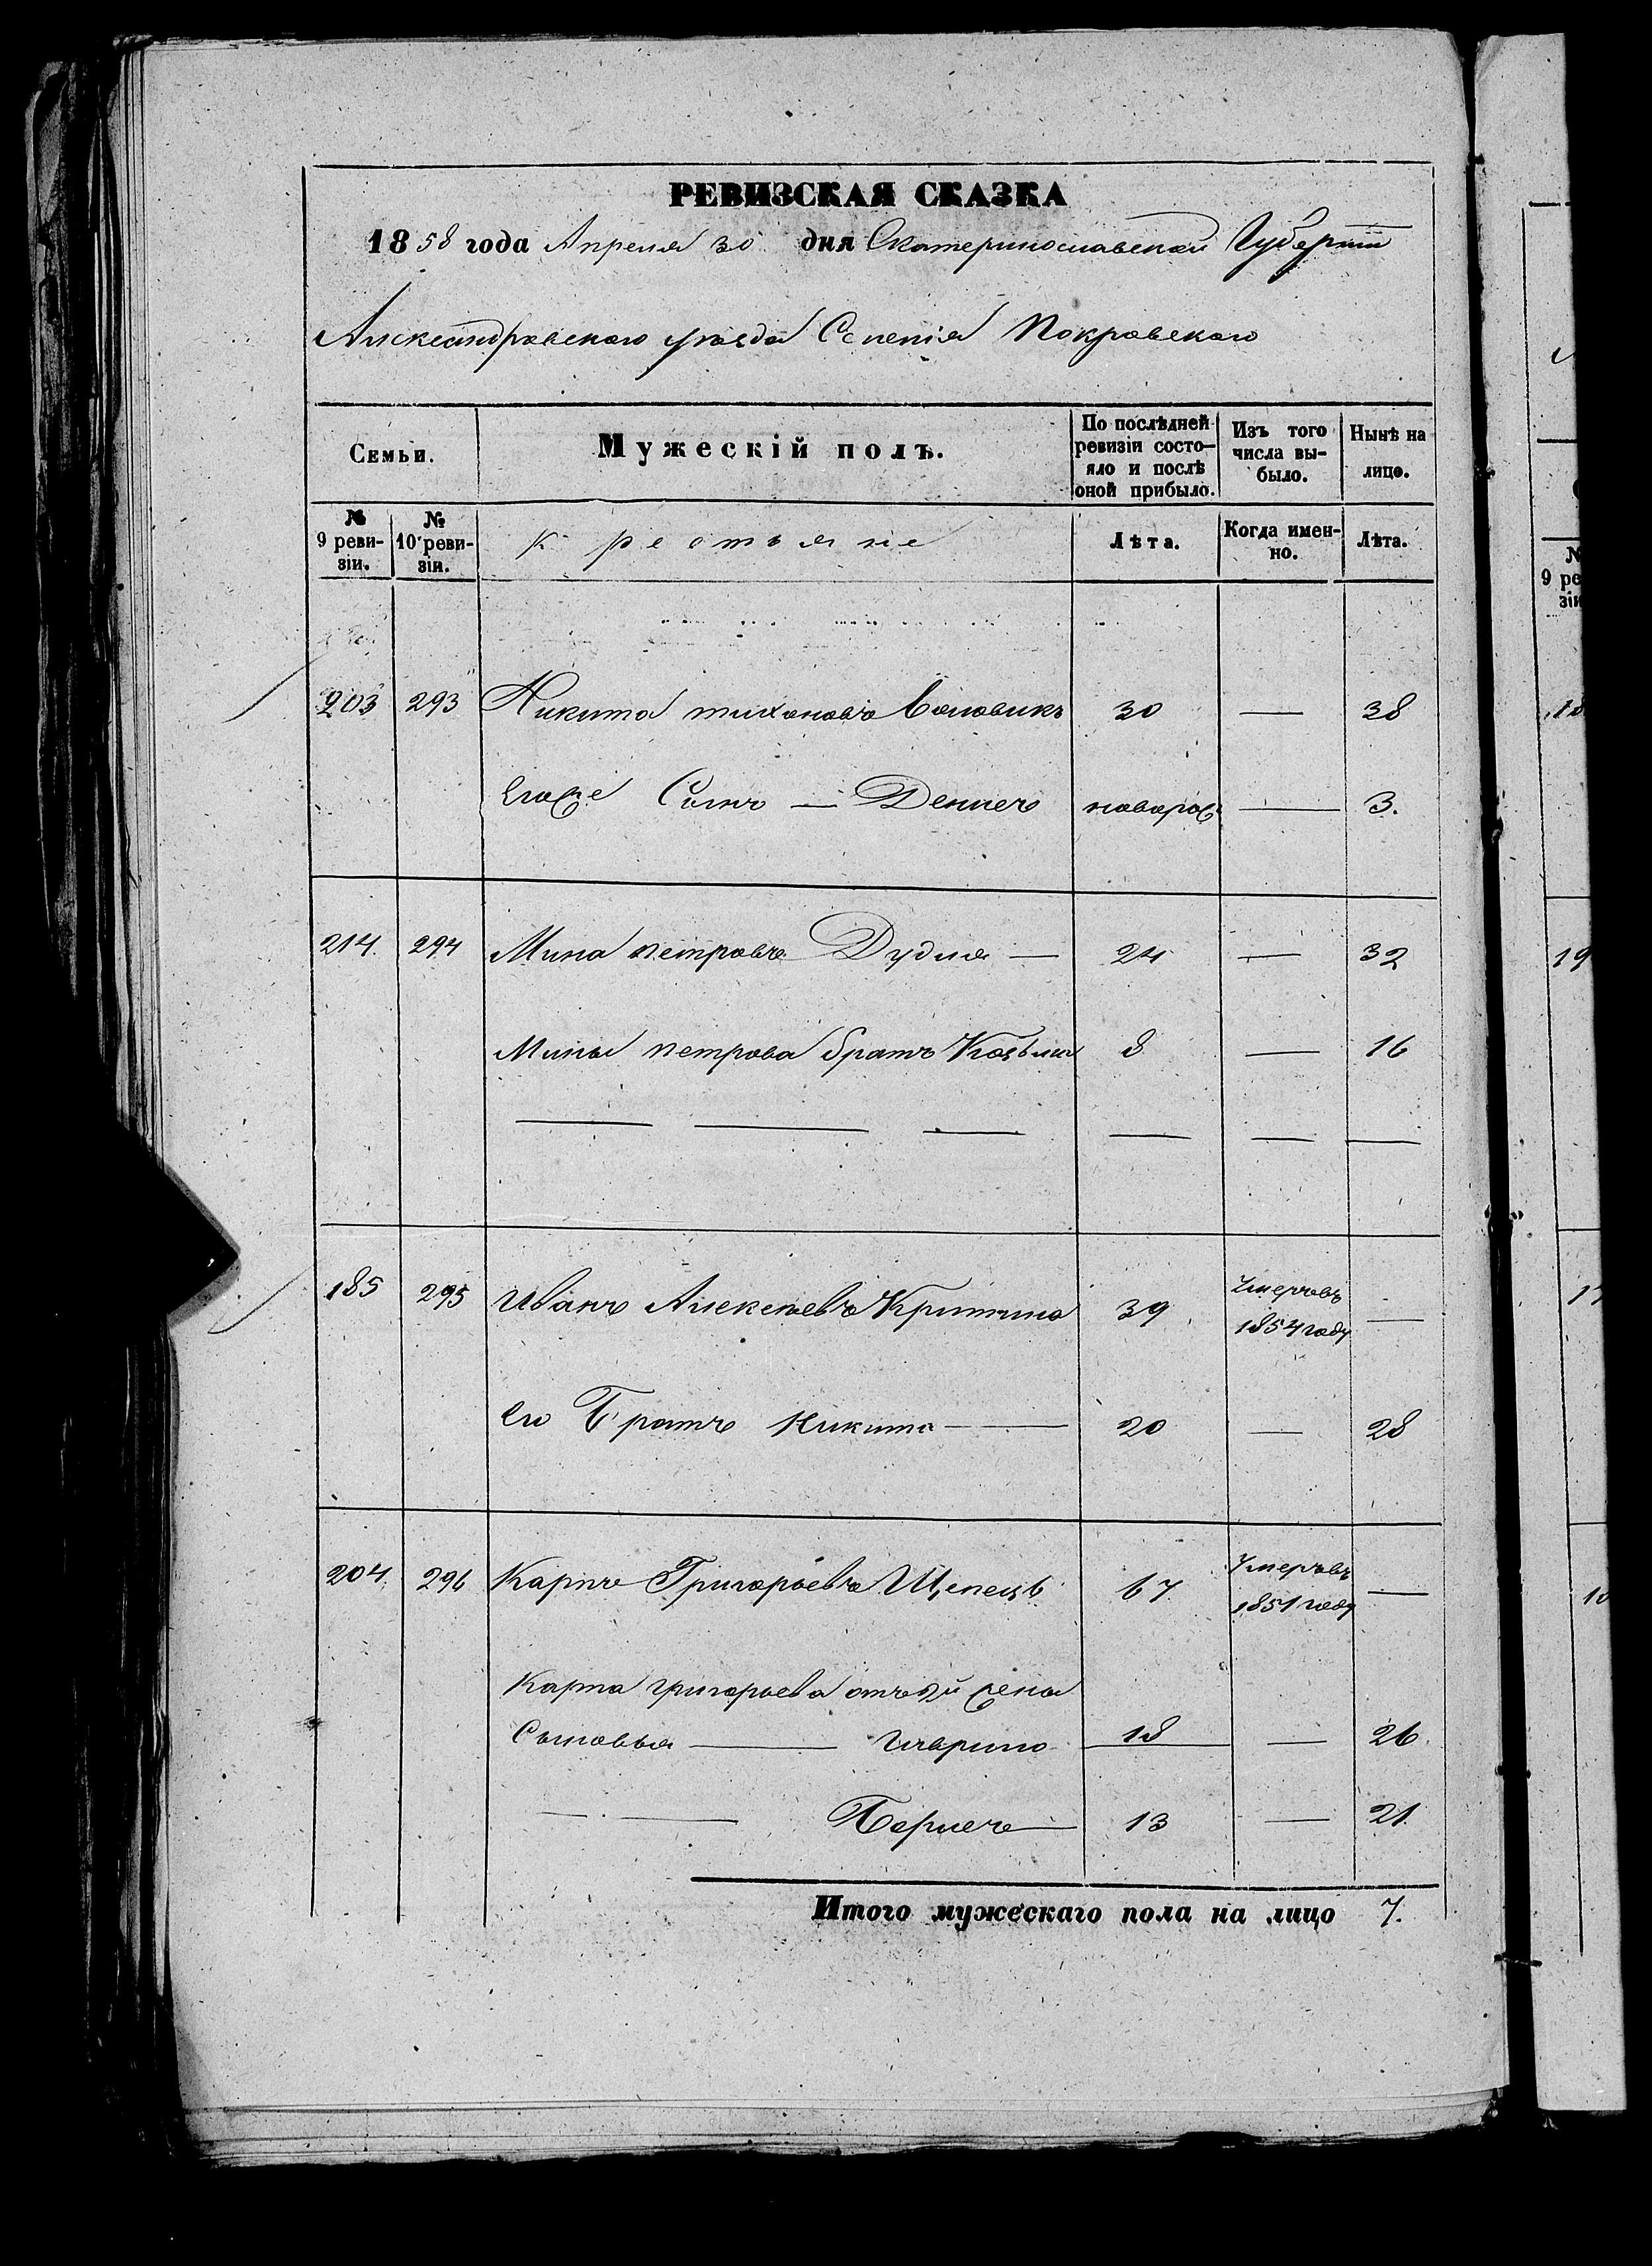 РЕВИЗСКАЯ СКАЗКА
1858 года Апреля 30 дня Екатеринославской Губернии
Александровского уѣзда Селенія Покровского
Семьи.
Мужескій полъ.
По послѣдней ревизіи состояло и послѣ оной прибыло.
Изъ того числа выбыло.
Нынѣ на лицо.
№ 9 ревизіи.
№ 10 ревизіи.
Крестьяне
Лѣта.
Когда именно.
Лѣта.
203 293 Никита тихоновъ Воловикъ 30 — 38
Егоже Сынъ — новорож — 3.
214. 294 Мина петровъ Дудля — 24 — 32
Мины петрова братъ Козьма 8 — 16
185 295 Иванъ Алексеевъ 39 Умеръ въ 1854 году —
его Братъ Никита — 20 — 28
204. 296 Карпъ Григорьевъ 67 Умеръ въ 1851 году —
Карпа григорьева отъ жены
Сыновья — 18 — 26.
— — 13 — 21.
Итого мужескаго пола на лицо 7.
9 ре
зіи
19